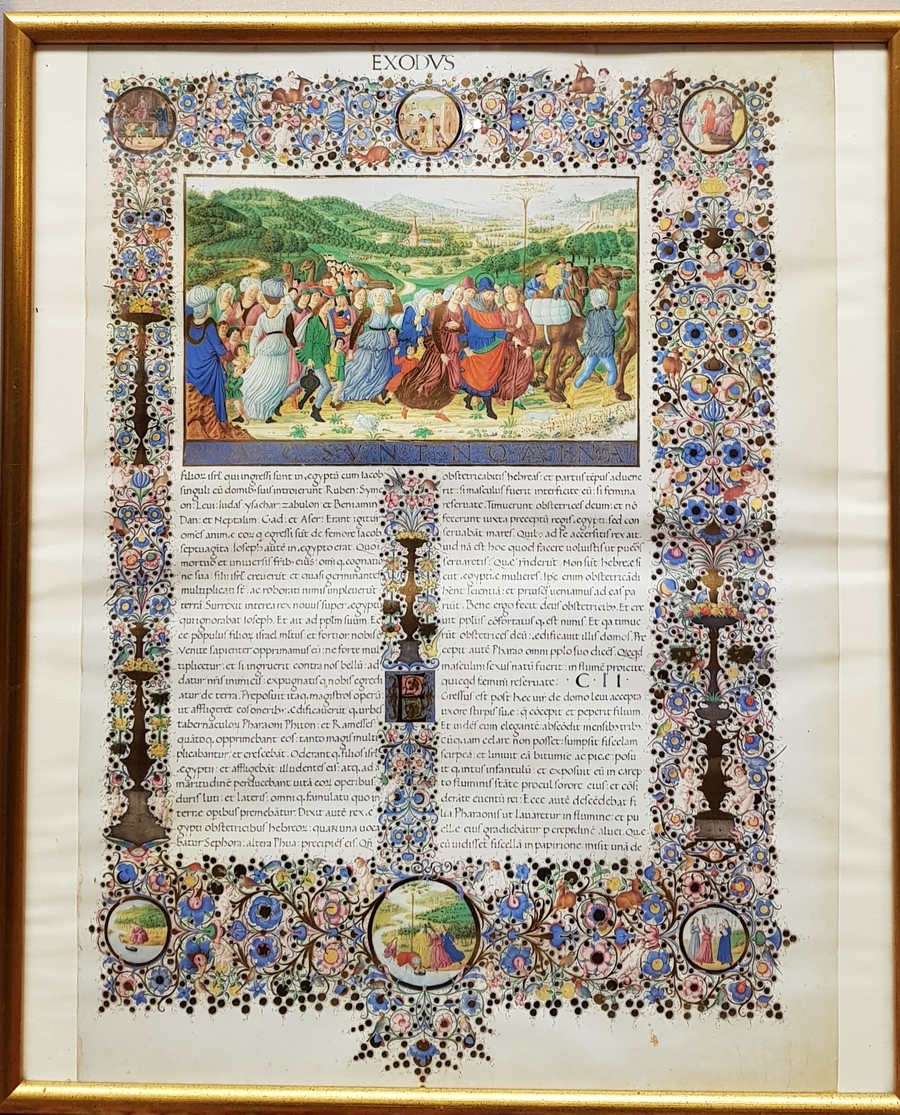 EXODVS
HAEC SVNT NOMINA
filioꝝ isrł qui ingressi sunt in ęgyptū cum Iacob
singuli cū domibꝰ suis introierunt Ruben: Syme
on: Leui: Iudas: ysachar: zabulon et Beniamin
Dan: et Neptalim: Gad: et Aser: Erant igitur
omēs animę eoꝝ q̇ egressi sūt de femore Iacob
septuagīta. Ioseph autē in ęgypto erat. Quo
mortuo et uniuersis frībꝰ eius: omīq̨ cognatio
ne sua: filii isrł creuerūt et quasi germinantes
multiplicati sūt: ac roborati nimis impleuerūt
terrā Surrexit interea rex nouus super ęgyptū
qui ignorabat Ioseph. Et ait ad pplm suum Ec
ce pŏpulus filioꝝ israel mltus et fortior nobis ē
Venite sapienter opprimamus eū: ne forte mul
tiplicetur: et si ingruerit contra nos bellū: ad
datur nr̄is inimicis: expugnatisq̨ nobis egredi
atur de terra. Preposuit itaq̨ magistros operū
ut affligeret eos oneribꝰ. Edificauerūt q̨ urbes
tabernaculoꝝ Pharaoni Phiton: et Ramesses
quātoq̨ opprimebant eos: tanto magis multi
plicabantur: et crescebāt. Oderantq̨ filios isrł
ęgyptii: et affligebāt illudentes eis: atq̨ ad a
maritudinē perducebant uitā eoꝝ operibus
duris luti: et lateris: omniq̨ famulatu quo in
terrę opibus premebātur: Dixit autē rex ę
gypti obstetricibus hebreoꝝ: quaꝝ una uoca
batur Sephora: altera Phua: precipiēs eis. Qn̄
E
obstetricabitis hebreas: et partus tēpus aduene
rit: si masculus fuerit interficite eū: si femina
reseruate. Timuerunt obstetrices deum: et nō
fecerunt iuxta preceptū regis ęgypti: sed con
seruabāt mares. Quibꝰ ad se accersitis rex ait.
Quid nā ēst hoc quod facere uoluistis ut pueros
seruaretis: Quę rn̄derūt. Non sūt hebreę si
cut ęgyptię mulieres. Ipsę enim obstetricādi
hēnt scientiā: et priusq̄ ueniamus ad eas pa
riūt. Bene ergo fecit deus obstetricibꝰ. Et cre
uit pplus cōfortatusq̨ est nimis. Et q̨ timue
rūt obstetrices deū: ędificauit illis domos. Pre
cepit autē Pharao omni pplo suo dicēs. Quicqd
masculini sexus natū fuerit: in flumē proicite.
quicqd feminī reseruate: · C · II ·
Gressus est post hęc uir de domo leui accepta
uxore stirpis suę: q̄ cōcepit et peperit filium.
Et uidēs eum elegantē abscōdit mensibꝰ tribꝰ.
Cūq̨ iam celare non posset: sumpsit fiscellam
scirpeā: et liniuit eā bitumīe ac pice: posu
itq̨ intus infantulū: et exposuit eū in carep
to fluminis stāte procul sorore eius: et cōsi
derāte euentū rei: Ecce autē descēdebat fi
lia Pharaonis ut lauaretur in flumine: et pu
ellę eius gradiebātur p crepidinē aluei. Quę
cū uidisset fiscellā in papirione misit unā de